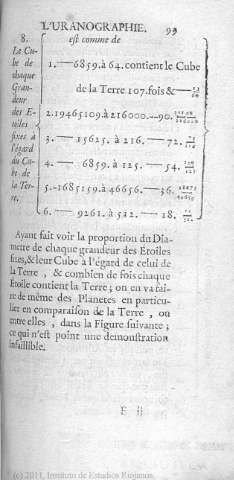 L'URANOGRAPHIE. 99
8.
La Cu-
be de
chaque
Gran-
deur
des E-
toiles
fixes à
l'égard
du Cu-
be de
la Ter-
re,
est comme de
1.—6859. à 64. contient le Cube
de la Terre 107. fois &—
2.19465109. à 216000.—90.
3.— 15625. à 216.—72.
4.— 6859. à 125.—54.
5.-1685159. à 46656.—36.
6.— 9261. à 512.—18.
Ayant fait voir la proportion du Dia-
metre de chaque grandeur des Etoiles
fixes, & leur Cube à l'égard de celui de
la Terre, & combien de fois chaque
Etoile contient la Terre; on en va fai-
re de même des Planetes en particu-
lier en comparaison de la Terre, ou
entre elles, dans la Figure suivante;
ce qui n'est point une demonstration
infaillible.
E ij
(c) 2011, Instituto de Estudios Riojanos